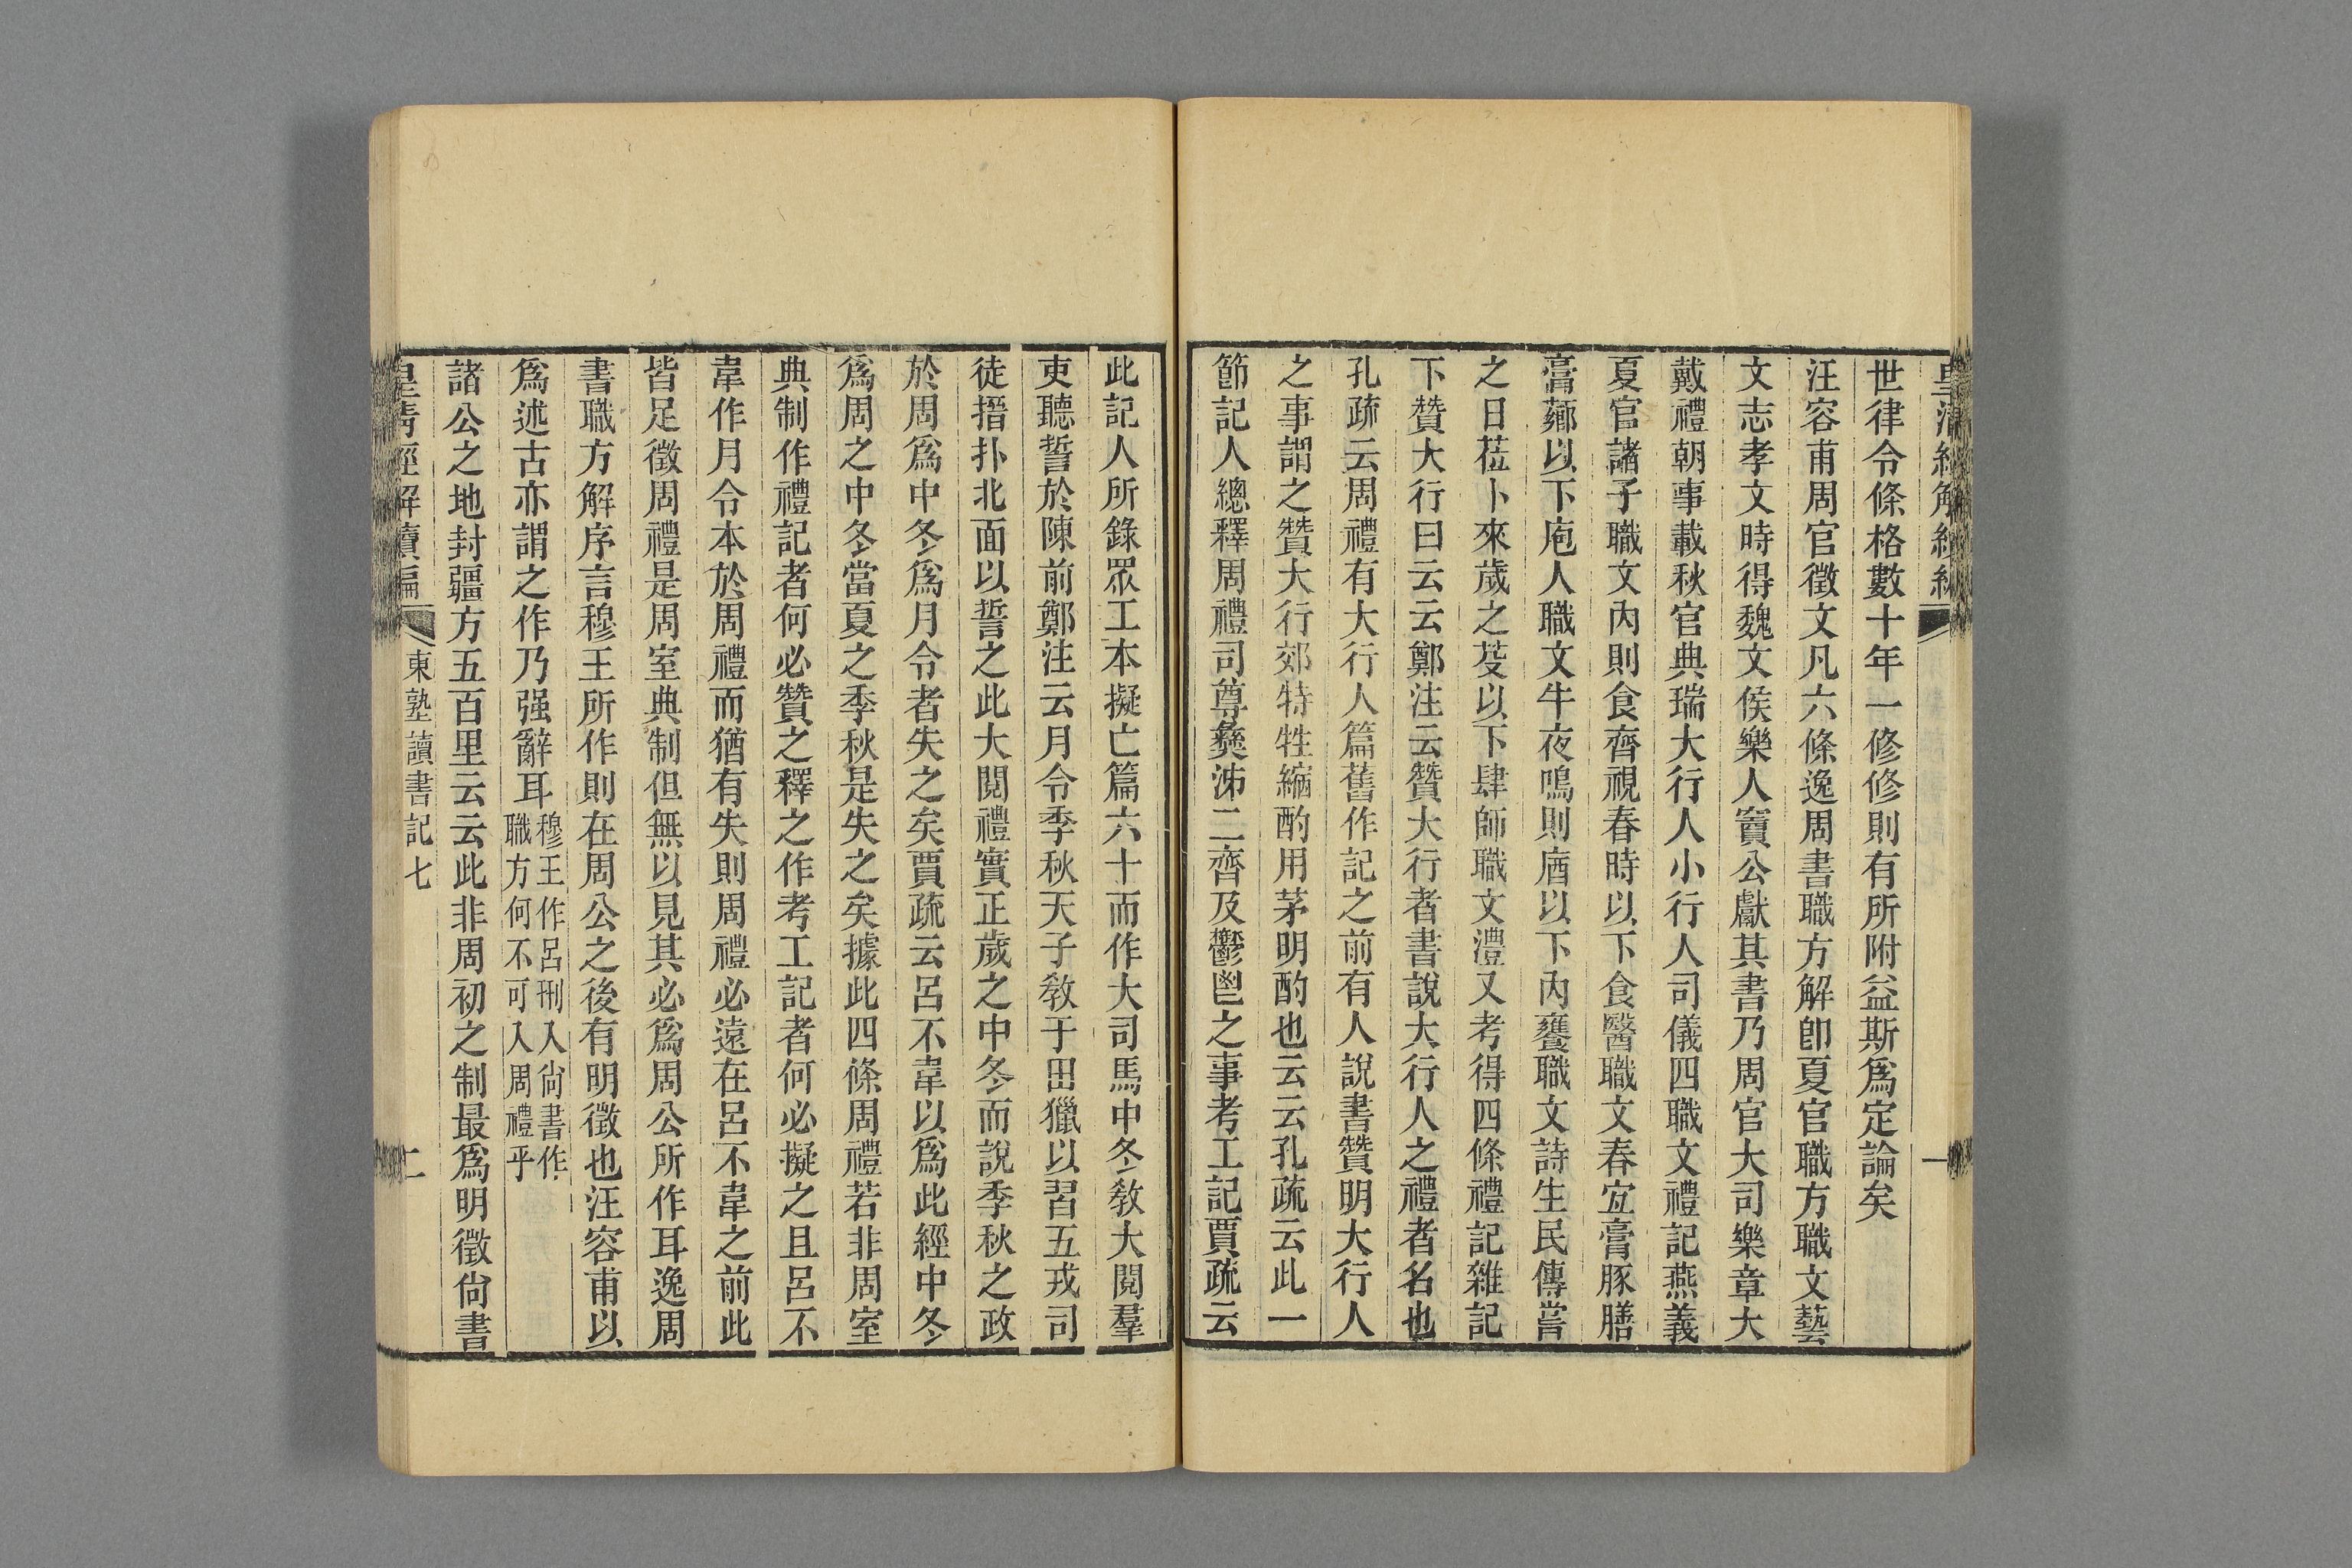 世律令條格數十年一修修則有所附益斯爲定論矣
汪容甫周官徵文凡六條逸周書職方解卽夏官職方職文藝
文志孝文時得魏文侯樂人竇公獻其書乃周官大司樂章大
戴禮朝事載秋官典瑞大行人小行人司儀四職文禮記燕義
夏官諸子職文內則食齊視春時以下食醫職文春宜膏豚膳
膏薌以下庖人職文牛夜鳴則庮以下內饔職文詩生民傳嘗
之日莅卜來歲之芟以下肆師職文澧又考得四條禮記雜記
下贊大行曰云云鄭注云贊大行者書說大行人之禮者名也
孔疏云周禮有大行人篇舊作記之前有人說書贊明大行人
之事謂之贊大行郊特牲縮酌用茅明酌也云云孔疏云此一
節記人總釋周禮司尊彝泲二齊及鬱鬯之事考工記賈疏云
此記人所錄眾工本擬亡篇六十而作大司馬中冬敎大閱羣
吏聽誓於陳前鄭注云月令季秋天子敎于田獵以習五戎司
徒搢扑北面以誓之此大閱禮實正歲之中冬而說季秋之政
於周爲中冬爲月令者失之矣賈疏云呂不韋以爲此經中冬
爲周之中冬當夏之季秋是失之矣據此四條周禮若非周室
典制作禮記者何必贊之釋之作考工記者何必擬之且呂不
韋作月令本於周禮而猶有失則周禮必遠在呂不韋之前此
皆足徵周禮是周室典制但無以見其必爲周公所作耳逸周
書職方解序言穆王所作則在周公之後有明徵也汪容甫以
爲述古亦謂之作乃强辭耳穆王作呂刑入尙書作職方何不可入周禮乎
諸公之地封疆方五百里云云此非周初之制最爲明徵尙書
皇清經解續編
東塾讀書記七
二